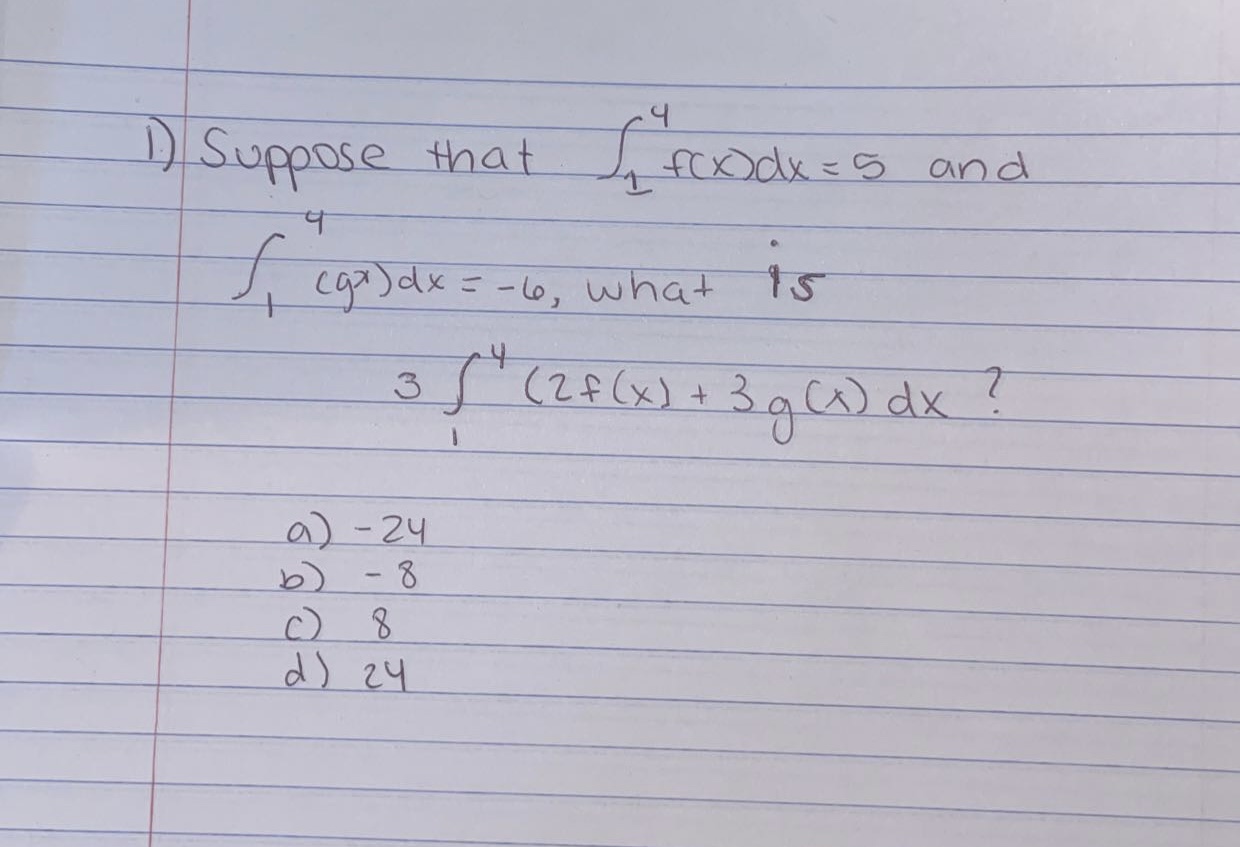 1) Suppose that ∫₁⁴ f(x)dx = 5 and
∫₁⁴ (gx)dx = -6, what is
3 ∫₁⁴ (2f(x) + 3g(x) dx ?
a) -24
b) -8
c) 8
d) 24